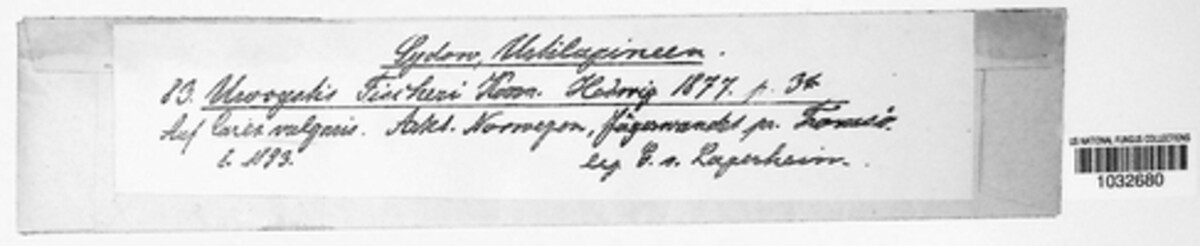 Sydow, Ustilagineen.
83. Urocystis Fischeri Körn. Hedwig 1877. p. 34
Auf Carex vulgaris. Arkt. Norwegen, Jägervandet pr. Tromsö.
1893. leg. G. v. Lagerheim.
US NATIONAL FUNGUS COLLECTIONS
1032680